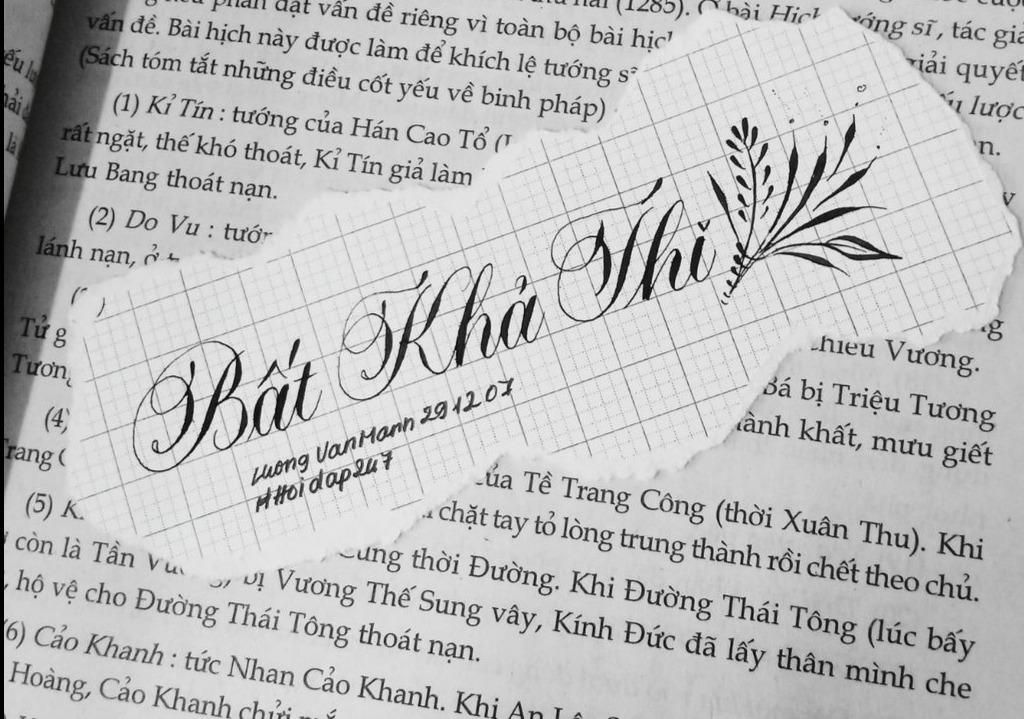 phần đặt vấn đề riêng vì toàn bộ bài hịch
(1285). Ở bài Hịch tướng sĩ, tác giả
vấn đề. Bài hịch này được làm để khích lệ tướng sĩ
giải quyết
(Sách tóm tắt những điều cốt yếu về binh pháp)
lược
(1) Kỉ Tín : tướng của Hán Cao Tổ
rất ngặt, thế khó thoát, Kỉ Tín giả làm
Lưu Bang thoát nạn.
(2) Do Vu : tướng
lánh nạn, ở
Bất Khả Thi
Luong Van Manh 29 12 07
# Hoidap247
Tử g
Vương.
Tương
Bá bị Triệu Tương
(4)
hành khất, mưu giết
Trang
của Tề Trang Công (thời Xuân Thu). Khi
(5) K
chặt tay tỏ lòng trung thành rồi chết theo chủ.
cung thời Đường. Khi Đường Thái Tông (lúc bấy
còn là Tần Vương) bị Vương Thế Sung vây, Kính Đức đã lấy thân mình che
, hộ vệ cho Đường Thái Tông thoát nạn.
(6) Cảo Khanh : tức Nhan Cảo Khanh. Khi An
Hoàng, Cảo Khanh chửi